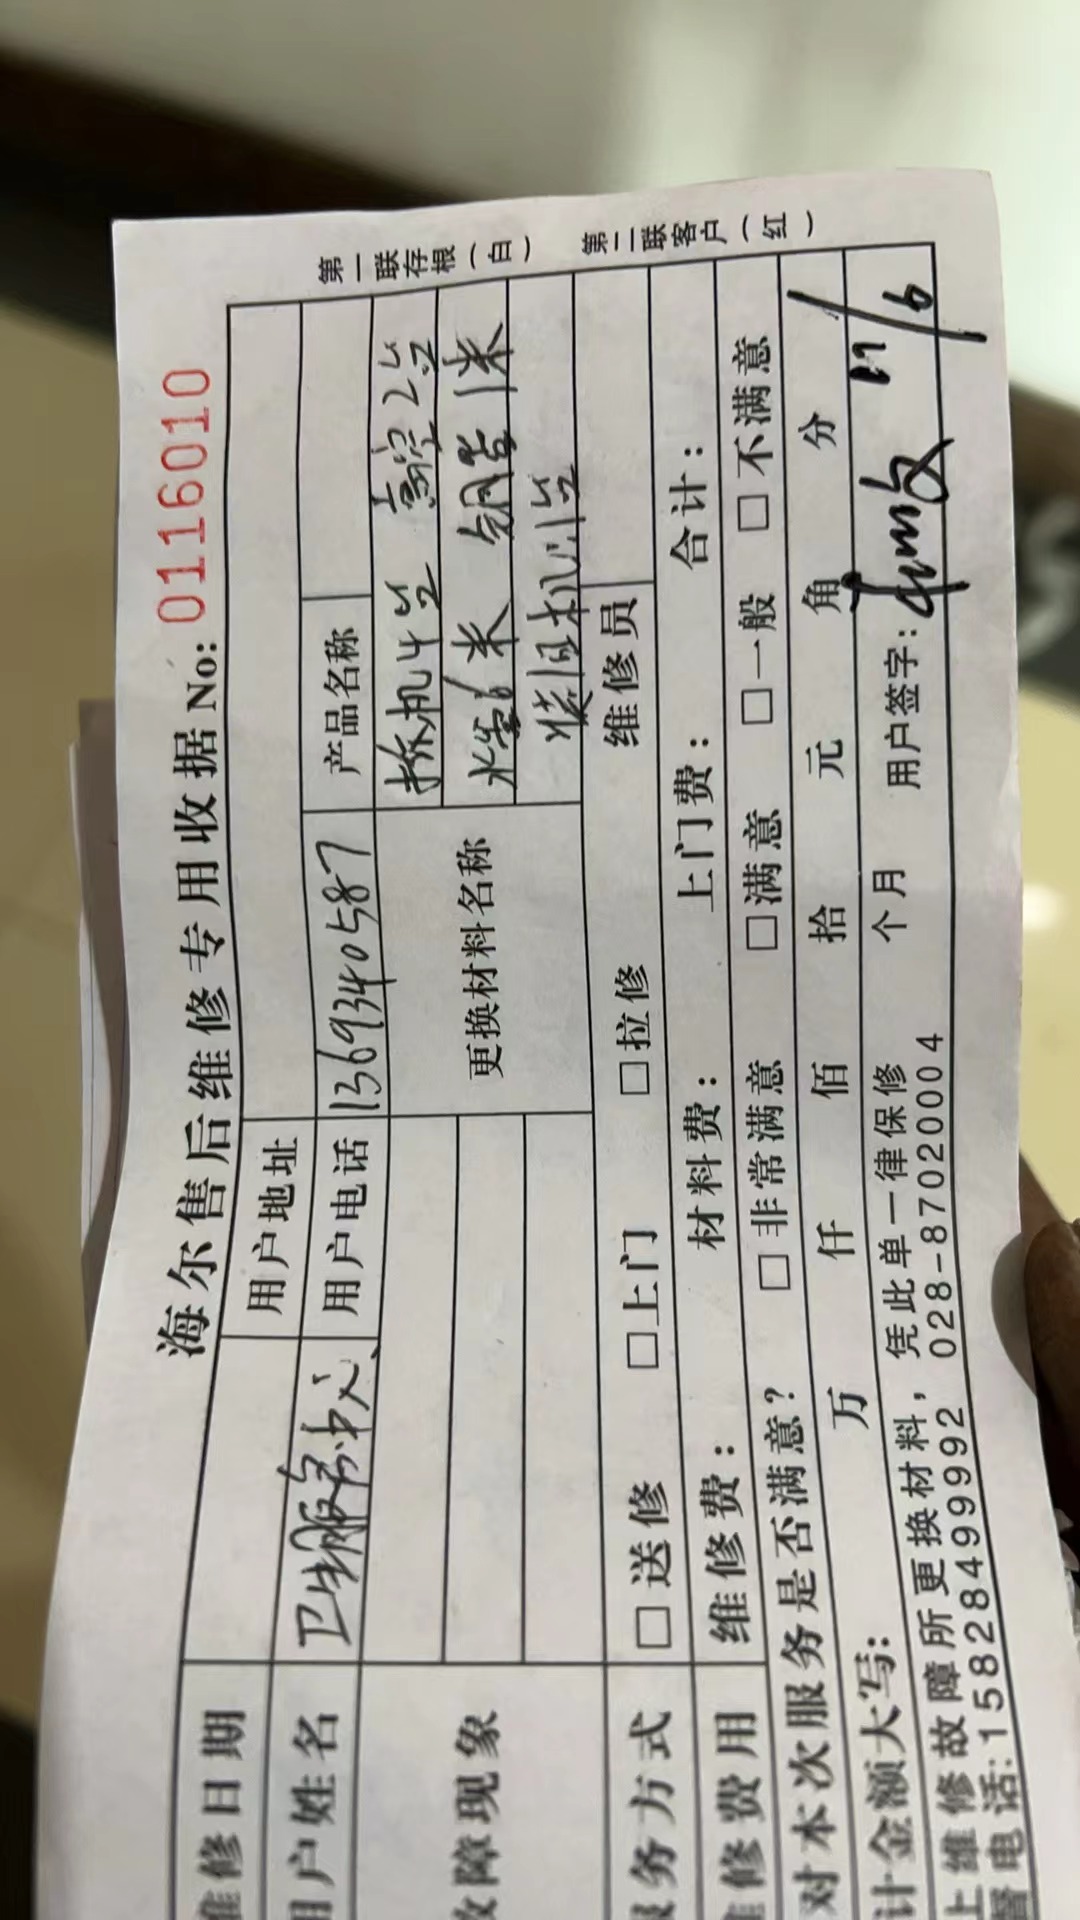 海尔售后维修专用收据 No: 0116010
第一联存根(白) 第二联客户(红)
维修日期 用户地址
用户姓名 卫生服务中心 用户电话 1369340587 产品名称
故障现象 更换材料名称 拆机4台 高空2台
水管 米 铜管 米
装旧机 台
服务方式 □送修 □上门 □拉修 维修员
维修费用 维修费: 材料费: 上门费: 合计:
对本次服务是否满意? □非常满意 □满意 □一般 □不满意
计金额大写: 万 仟 佰 拾 元 角 分
上维修故障所更换材料,凭此单一律保修 个月 用户签字: 11/6
督电话:15828499992 028-87020004